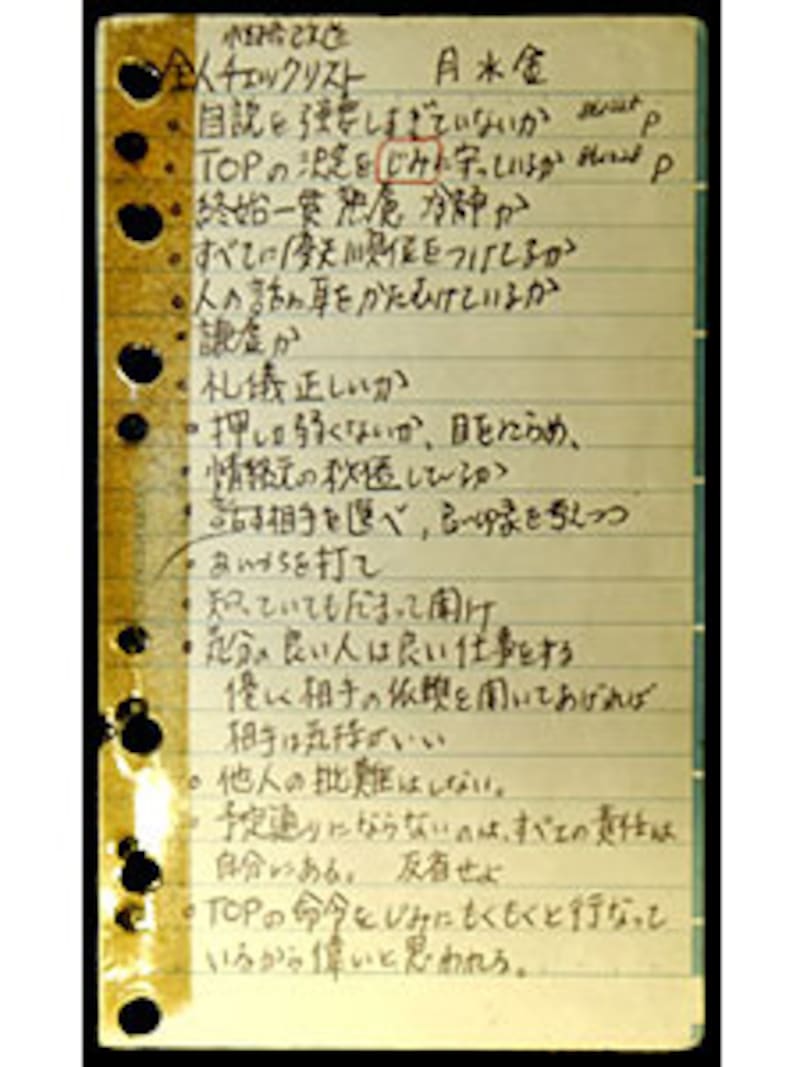 性格改造
全人チェックリスト 月水金
・自説を強要しすぎていないか P
・TOPの決定をじみに守っているか P
・終始一貫 熟慮 冷静か
・すべてに優先順位をつけてるか
・人の話に耳をかたむけているか
・謙虚か
・礼儀正しいか
・押しは弱くないか、目をにらめ、
・情報元の秘匿しているか
・話す相手を選べ,
・あいづちを打て
・知っていてもだまって聞け
・気分の良い人は良い仕事をする
優しく相手の依頼を聞いてあげれば
相手は気持がいい
・他人の批難はしない。
・予定通りにならないのは、すべての責任は
自分にある。 反省せよ
・TOPの命令をじみにもくもくと行なって
いるから偉いと思われる。